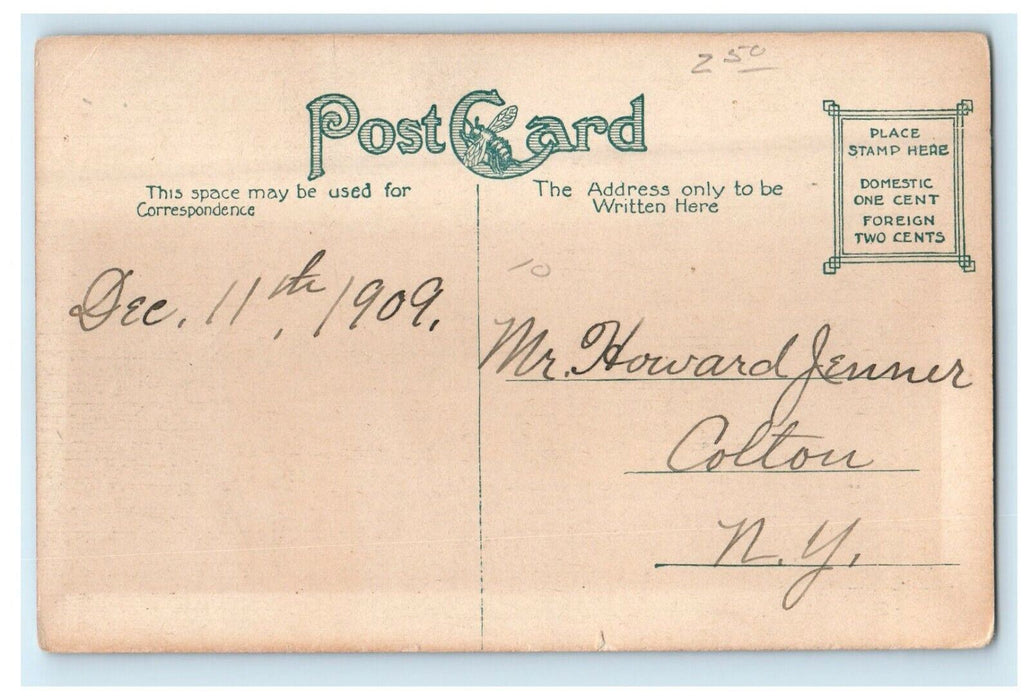 2 50
Post Card
This space may be used for
Correspondence
The Address only to be
Written Here
PLACE
STAMP HERE
DOMESTIC
ONE CENT
FOREIGN
TWO CENTS
10
Dec. 11th, 1909.
Mr. Howard Jenner
Colton
N. Y.